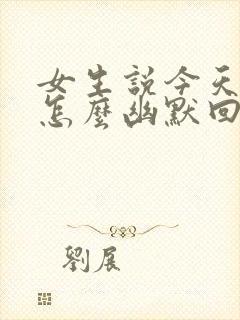 女生説今天
怎麼幽默回
劉展